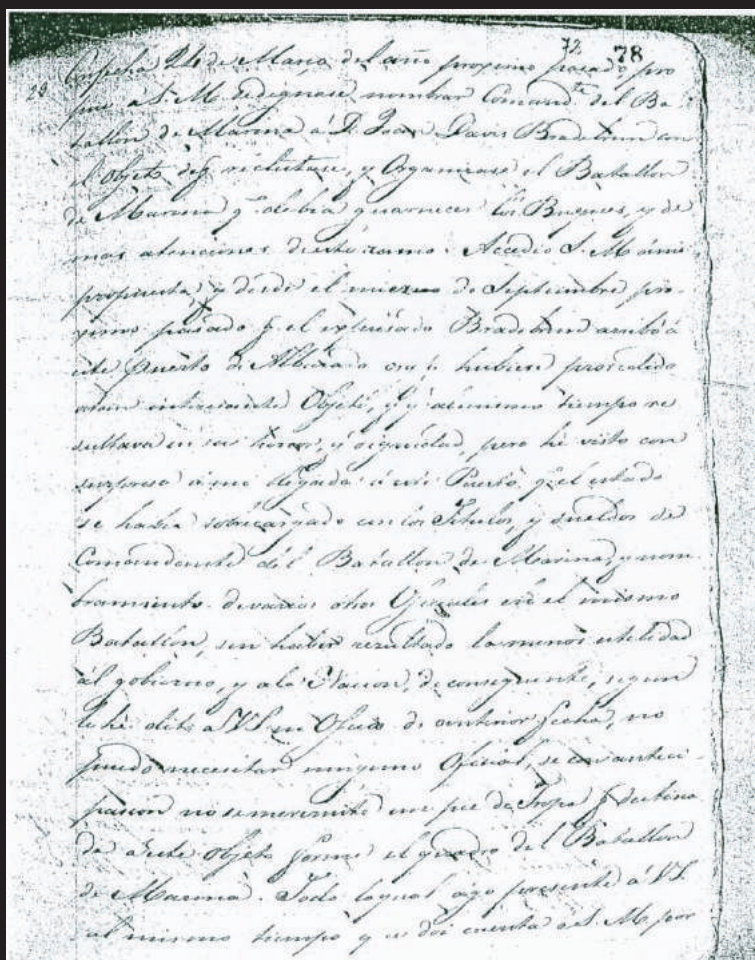 72 78
29 Con fecha 24 de Marzo del año proximo pasado pro
puse á S. M. se dignase nombrar Comand.te del Ba-
tallon de Marina á D. Juan Davis Bradebrun con
el objeto de q.e reclutase, y Organizase el Batallon
de Marina q.e debia guarnecer los Buques, y de
mas atenciones de este ramo. Accedio S. M. á mi
propuesta, y desde el mes de Septiembre pro-
ximo pasado q.e el expresado Bradebrun arribó á
este Puerto de Albarado crei q.e hubiese procedido
Objeto, y q.e al mismo tiempo re
sultava en su honor, y dignidad, pero hé visto con
surpresa á mi llegada á este Puerto q.e el estado
se habia sobrecargado con los Titulos, y sueldos de
Comandante del Batallon de Marina, y nom-
bramiento de varios otros Oficiales en el mismo
Batallon, sin haber resultado la menor utilidad
al gobierno, y a la Nacion, de consiguiente, segun
le hé dicho a VS. en Oficio de anterior fecha, no
puedo necesitar ninguno Oficial, se con antici-
pacion no se me remite un pie de Tropa q.e destina
do a este objeto forme el quadro del Batallon
de Marina. Todo lo qual ago presente á VS.
al mismo tiempo q.e doi cuenta a S. M. por